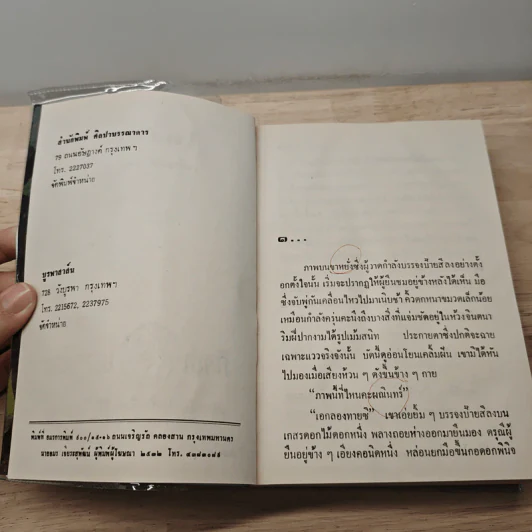 สำนักพิมพ์ ศิลปาบรรณาคาร
78 ถนนอัษฎางค์ กรุงเทพฯ
โทร. 2237037
จัดพิมพ์จำหน่าย
บูรพาสาส์น
728 วังบูรพา กรุงเทพฯ
โทร. 2215672, 2237975
จัดจำหน่าย
พิมพ์ที่ ธนะการพิมพ์ ๕๐๐/๑๕-๑๖ ถนนเจริญรัถ คลองสาน กรุงเทพมหานคร
ผู้พิมพ์ผู้โฆษณา ๒๕๓๒ โทร. ๔๓๗๓๐๘๕
๑...
ภาพบนขาหยั่งซึ่งผู้วาดกำลังบรรจงป้ายสีลงอย่างตั้ง
อกตั้งใจนั้น เริ่มจะปรากฏให้ผู้ยืนชมอยู่ข้างหลังได้เห็น มือ
ซึ่งจับพู่กันเคลื่อนไหวไปมาเนิบช้า คิ้วดกหนาขมวดเล็กน้อย
เหมือนกำลังครุ่นคะนึงถึงบางสิ่งที่แจ่มชัดอยู่ในห้วงจินตนา
ริมฝีปากงามได้รูปเม้มสนิท ประกายตาซึ่งปกติจะฉาย
เฉพาะแววจริงจังนั้น บัดนี้ดูอ่อนโยนเคลิ้มฝัน เขามิได้หัน
ไปมองเมื่อเสียงห้วน ๆ ดังขึ้นข้าง ๆ กาย
“ภาพนี้ที่ไหนคะผณินทร์”
“เอกลองทายซิ” เขาเอ่ยยิ้ม ๆ บรรจงป้ายสีลงบน
เกสรดอกไม้ดอกหนึ่ง พลางถอยห่างออกมายืนมอง ดรุณีผู้
ยืนอยู่ข้าง ๆ เอียงคอนิดหนึ่ง หล่อนยกมือขึ้นกอดอกพินิจ